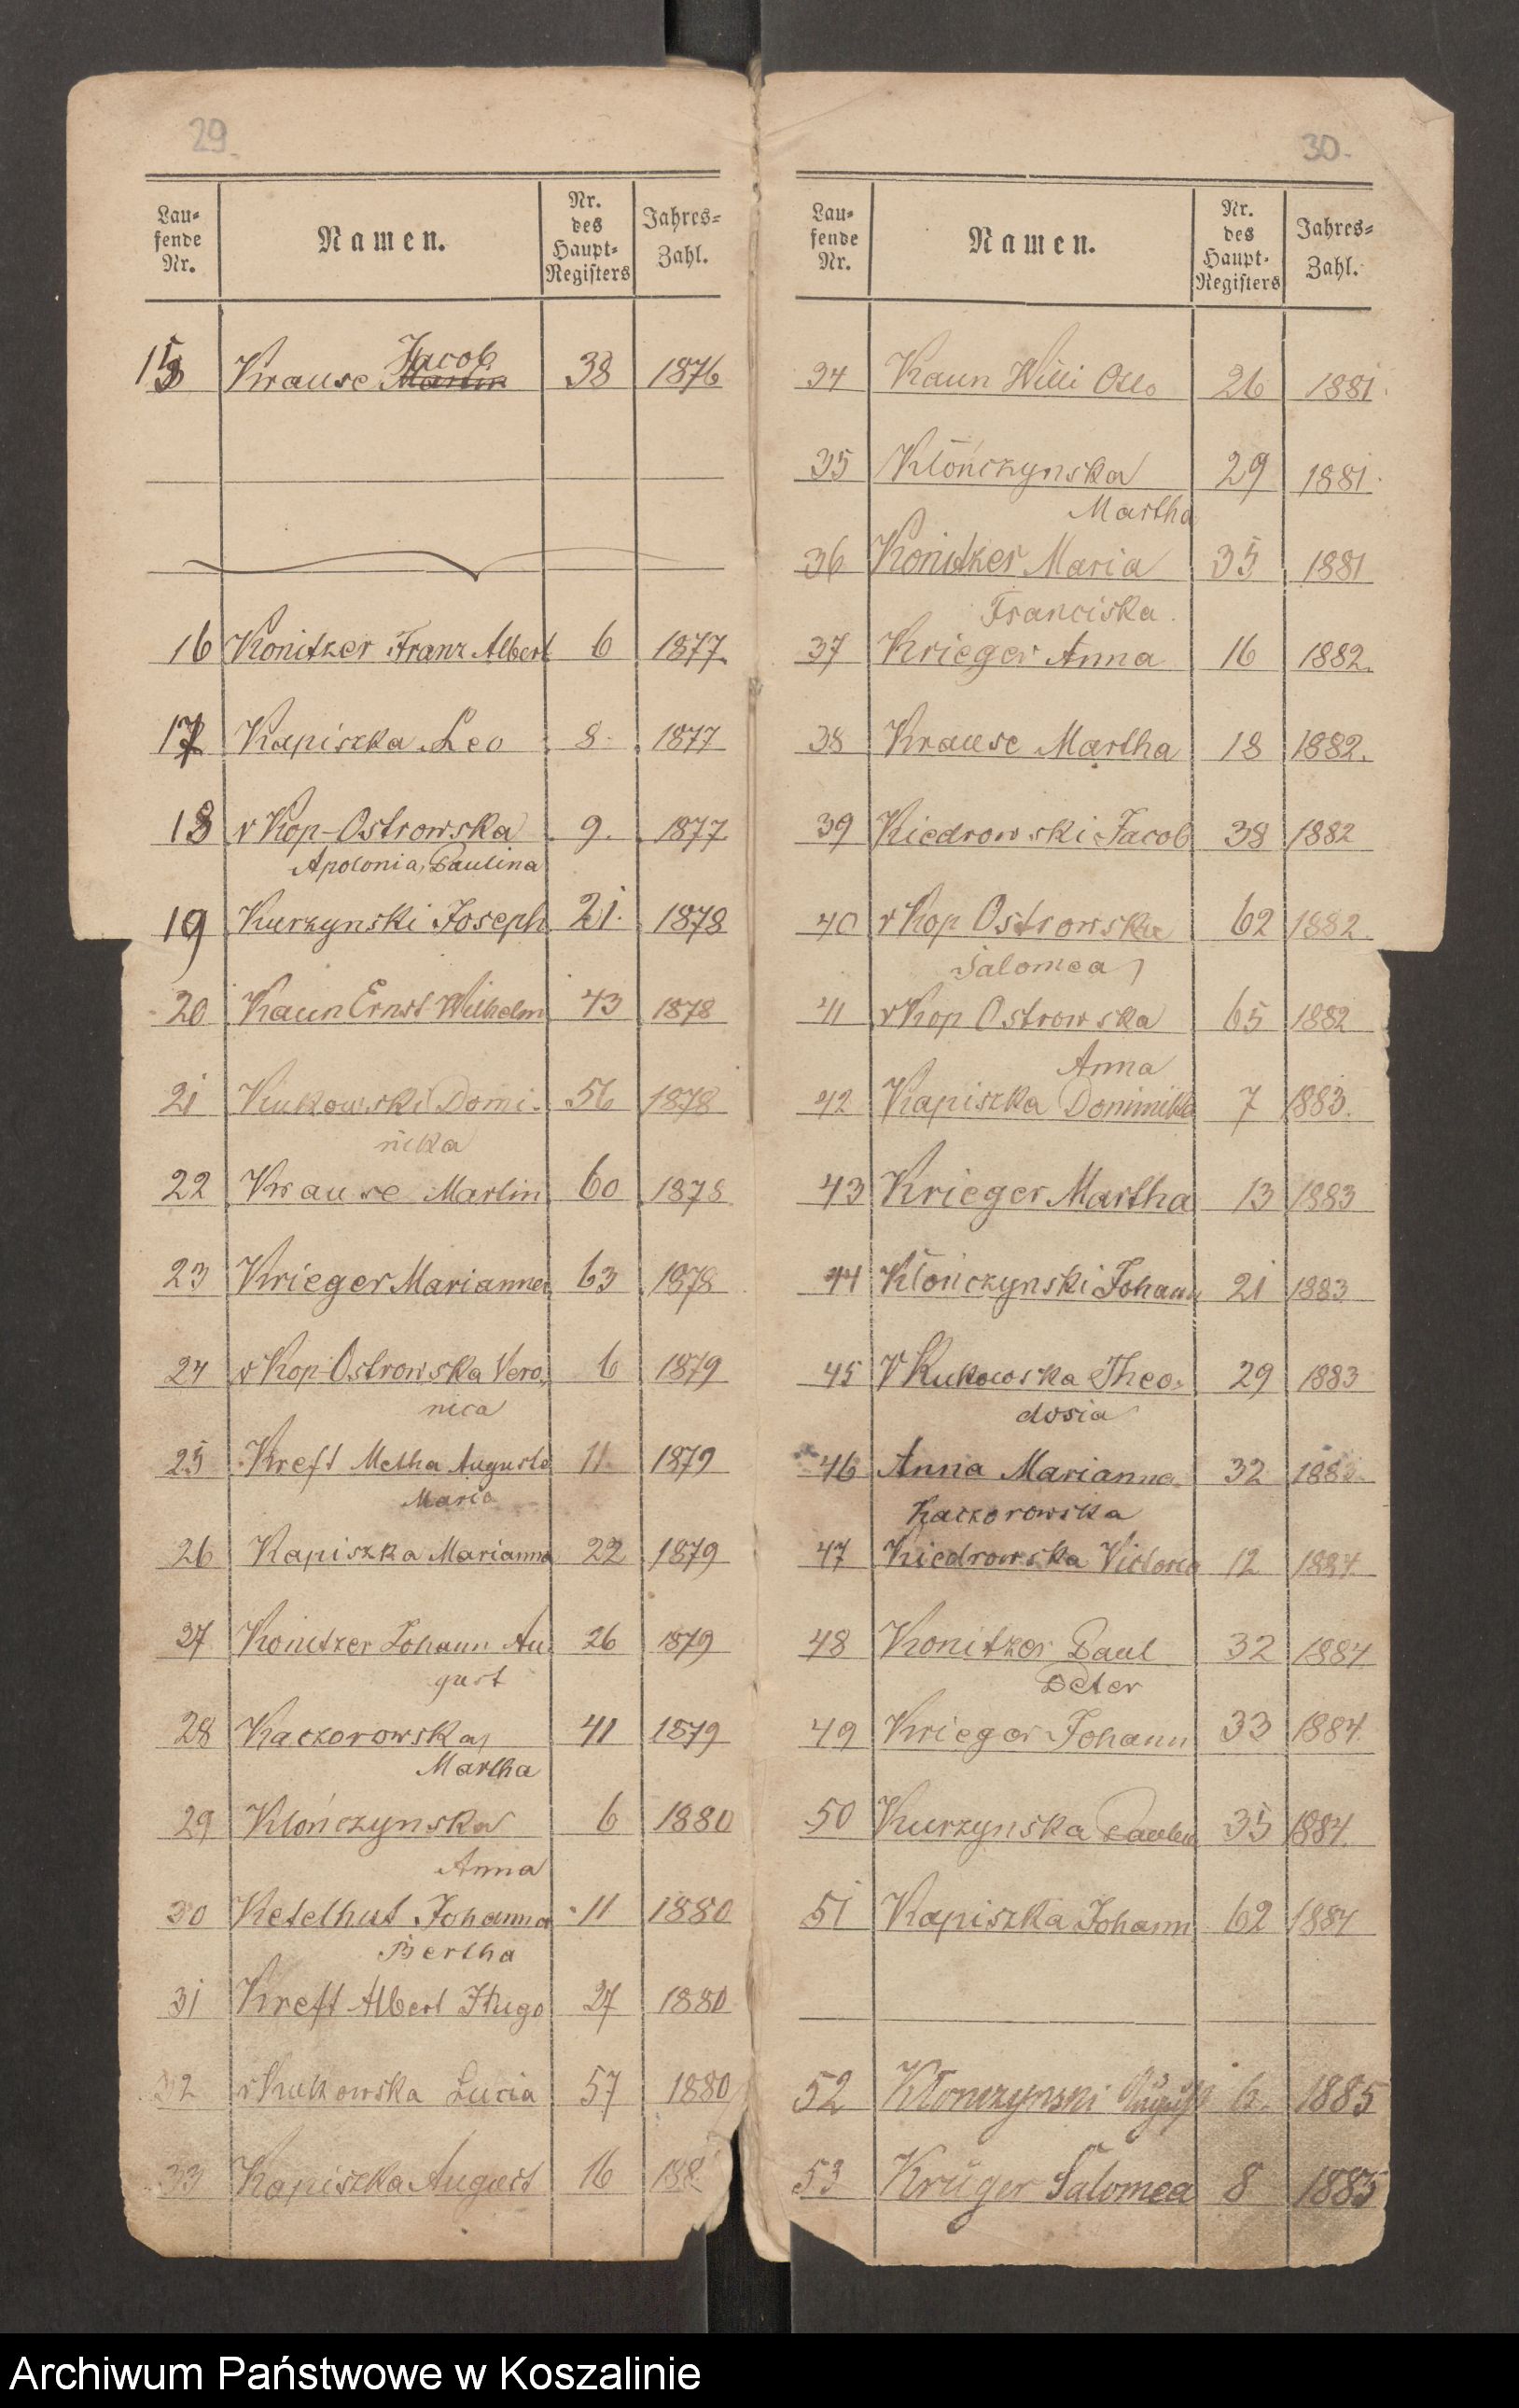 29.
Lau-
fende
Nr.
Namen.
Nr.
des
Haupt-
Registers
Jahres-
Zahl.
15 Krause Jacob 38 1876
16 Konitzer Franz Albert 6 1877.
17 Kapiszka Leo 8 1877
18 v Kop-Ostrowska 9. 1877
Apolonia, Paulina
19 Kurzynski Joseph 21. 1878
20 Kaun Ernst Wilhelm 43 1878
21 Kukowski Domi- 56 1878
nika
22 Krause Martin 60 1878
23 Krieger Marianna 63 1878
24 v Kop-Ostrowska Vero, 6 1879
nica
25 Kreft Metha Augusta 11 1879
Maria
26 Kapiszka Marianna 22 1879
27 Konitzer Johann Au- 26 1879
gust
28 Kaczorowska, 41 1879
Martha
29 Klończynska 6 1880
Anna
30 Ketelhut Johanna 11 1880
Bertha
31 Kreft Albert Hugo 27 1880
32 v Kukowska Lucia 57 1880
33 Kapiszka August 16 188
30.
Lau-
fende
Nr.
Namen.
Nr.
des
Haupt-
Registers
Jahres-
Zahl.
34 Kaun Willi Otto 26 1881.
35 Klończynska 29 1881.
Martha
36 Konitzer Maria 35 1881
Franciska.
37 Krieger Anna 16 1882.
38 Krause Martha 18 1882.
39 Kiedrowski Jacob 38 1882
40 v Kop Ostrowska 62 1882
Salomea
41 v Kop Ostrowska 65 1882
Anna
42 Kapiszka Dominika 7 1883.
43 Krieger Martha 13 1883
44 Klończynski Johann 21 1883
45 V Kukowska Theo- 29 1883
dosia
46 Anna Marianna 32 1883.
Kaczorowska
47 Kiedrowska Victoria 12 1884.
48 Konitzer Paul 32 1884
Peter
49 Krieger Johann 33 1884.
50 Kurzynska Paulina 35 1884.
51 Kapiszka Johann 62 1884
52 Kłonczynski August 6. 1885
53 Krüger Salomea 8 1885
Archiwum Państwowe w Koszalinie